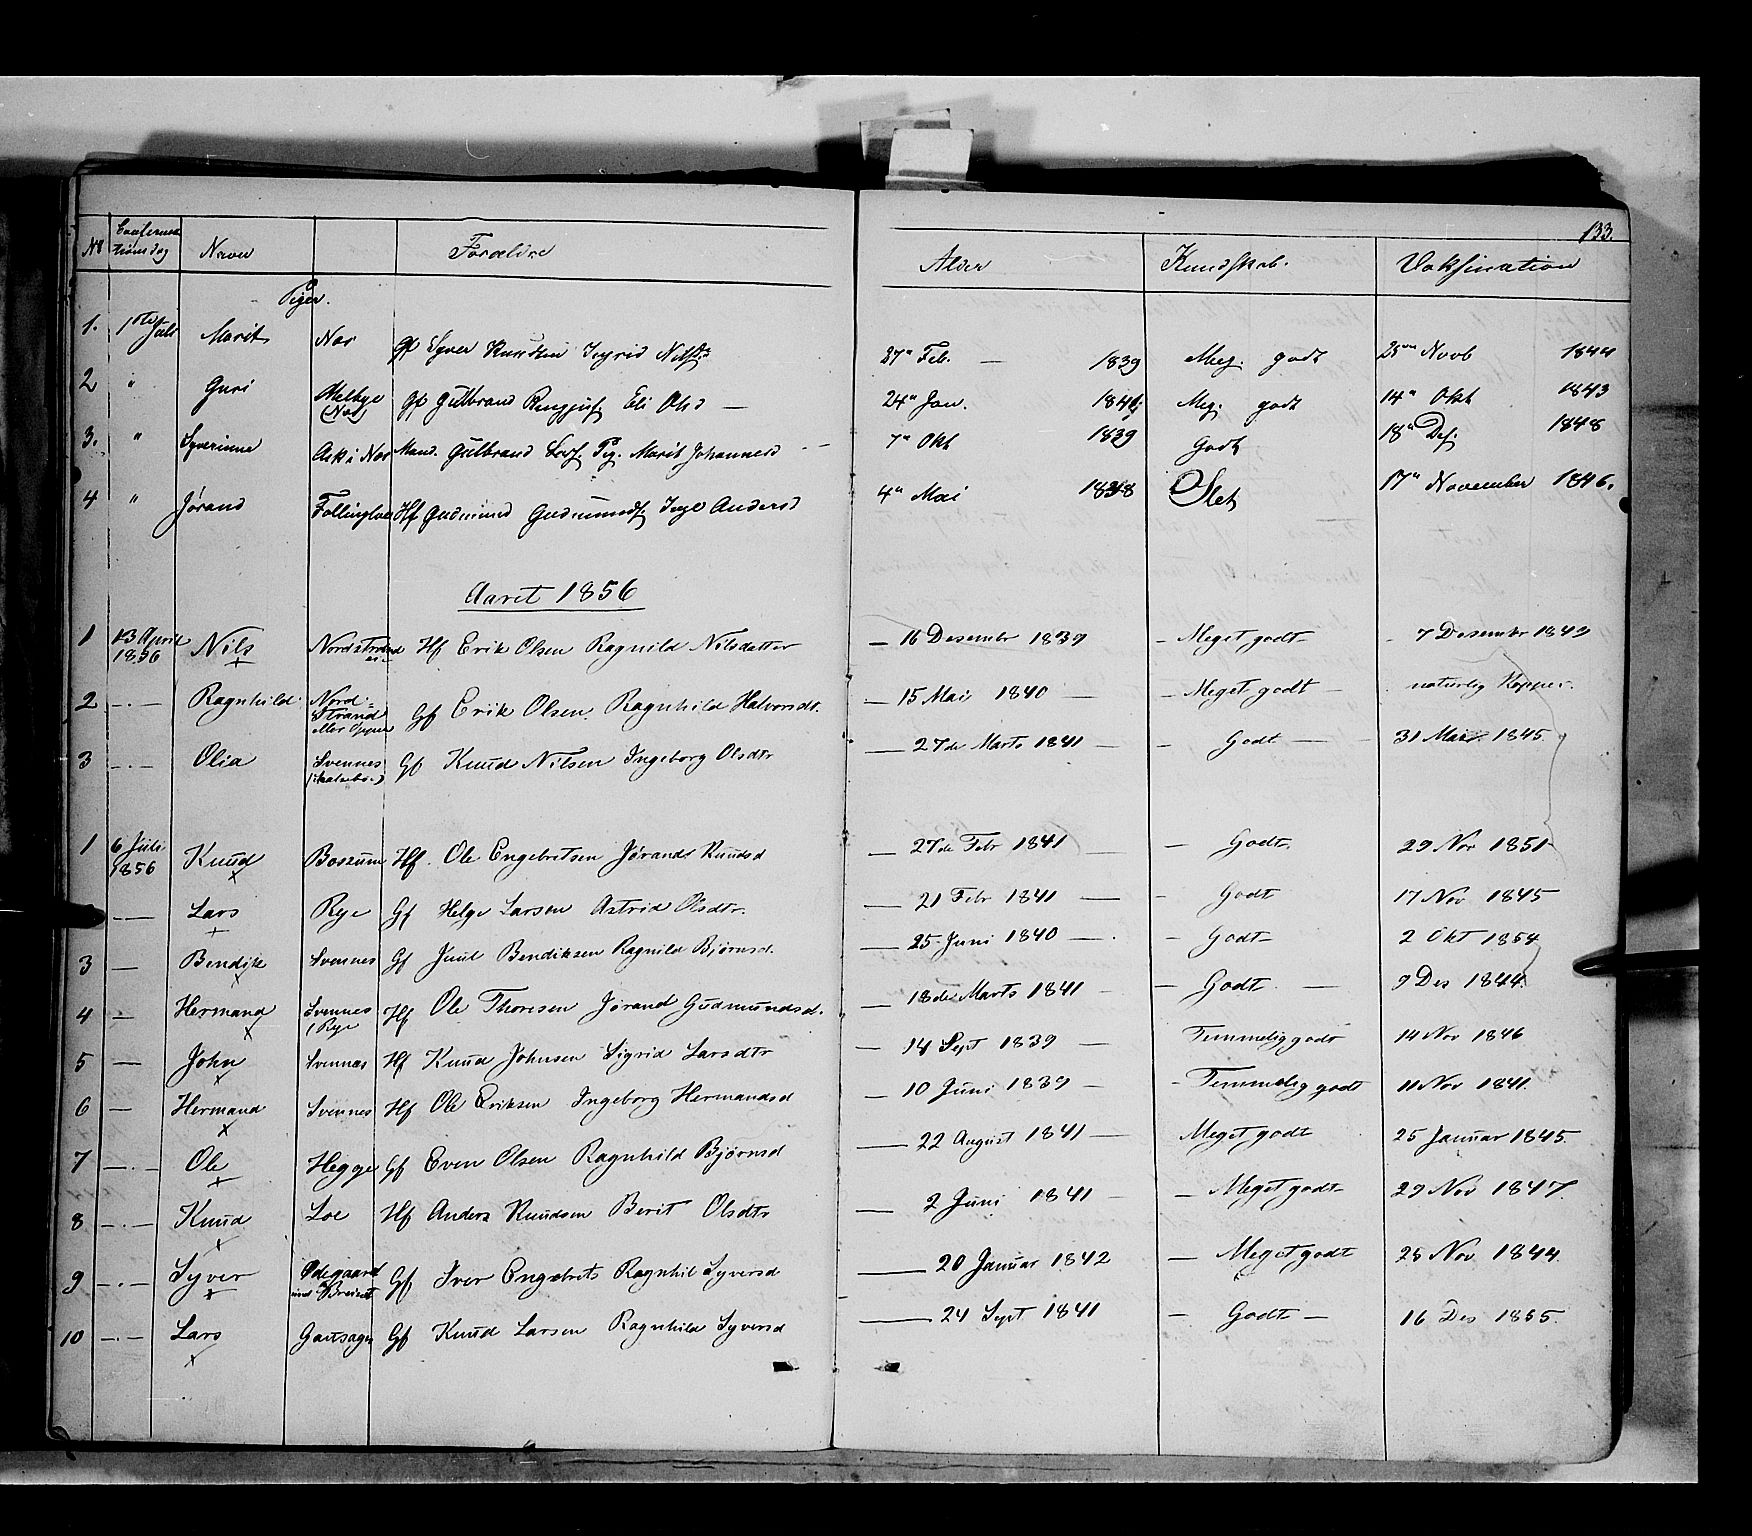 133.
No Confirmationsdag Navn Forældre Alder Kundskab. Vaksination
Piger.
1. 1ste Juli Marit Nas Gf Syver Knudsen Ingrid 27" Feb. — 1839 Meg. godt Novb 1844
2 " Guri Melbye (Nas) Gf Gulbrand Eli Olsd — 24" Jan. Meg. godt 14" Okt 1843
3. " Syverinne Ask i Nas Gulbrand Pig. Marit Johannesd 7" Okt 1839 Godt 18" Des. 1848
4 " Jørand Hf Gudmund Gudmunds. Inge Andersd 4" Mai 1838 Slet 17" November 1846.
Aaret 1856
1 13 April 1856 Nils Nordstrand Hf Erik Olsen Ragnild Nilsdatter — 16 Desembr 1839 – Meget godt – 7 Desembr 1849
2 — . — Ragnhild Nord=Strand eller Gf Erik Olsen Ragnhild Halvorsdt. — 15 Mai 1840 — – Meget godt – naturlig Kopper.
3 — . — Olia Svennes Gf Knud Nilsen Ingeborg Olsdtr — 27de Marts 1841 — – Godt — 31 Mai 1845
1 6 Juli 1856 Knud Hf. Ole Engebritsen Jørand Knudsd — 27de Febr 1841 — – Godt. 29 Nov 1851
— Lars Rye Gf Helge Larsen Astrid Olsdtr. — 21 Febr 1841 — – Godt 17 Nov 1845
3 — Bendik Svennes Gf Juul Bendiksen Ragnild Bjørnsd. — 25 Juni 1840 — . – Godt – 2 Okt 1854
4 — Hermand Svennes (Rye Hf Ole Thoresen Jørand Gudmundsd. — 18de Marts 1841 – — Godt. — 9 Des 1844
5 — John Svennes Hf Knud Johnsen Sigrid Larsdtr — 14 Sept 1839 — Temmelig godt 14 Nov 1846
6 — Hermand Svennes Hf Ole Eriksen Ingeborg Hermandsd — 10 Juni 1839 – – Temmelig godt 11 Nov 1841.
7 — . — Ole Hegge Gf Even Olsen Ragnhild Bjørnsd — 22 August 1841 — Meget godt 25 Januar 1845.
8 — . — Knud Loe Hf Anders Knudsen Berit Olsdtr 2 Juni 1841 – – Meget godt 29 Nov 1847.
9 — . — Syver Ødegaard Gf Iver Engebrets Ragnhil Syversd — 20 Januar 1842 — Meget godt 28 Nov 1844.
10 — . — Lars Gf Knud Larsen Ragnhild Syversd — 24 Sept 1841 – Godt — 16 Des 1855.